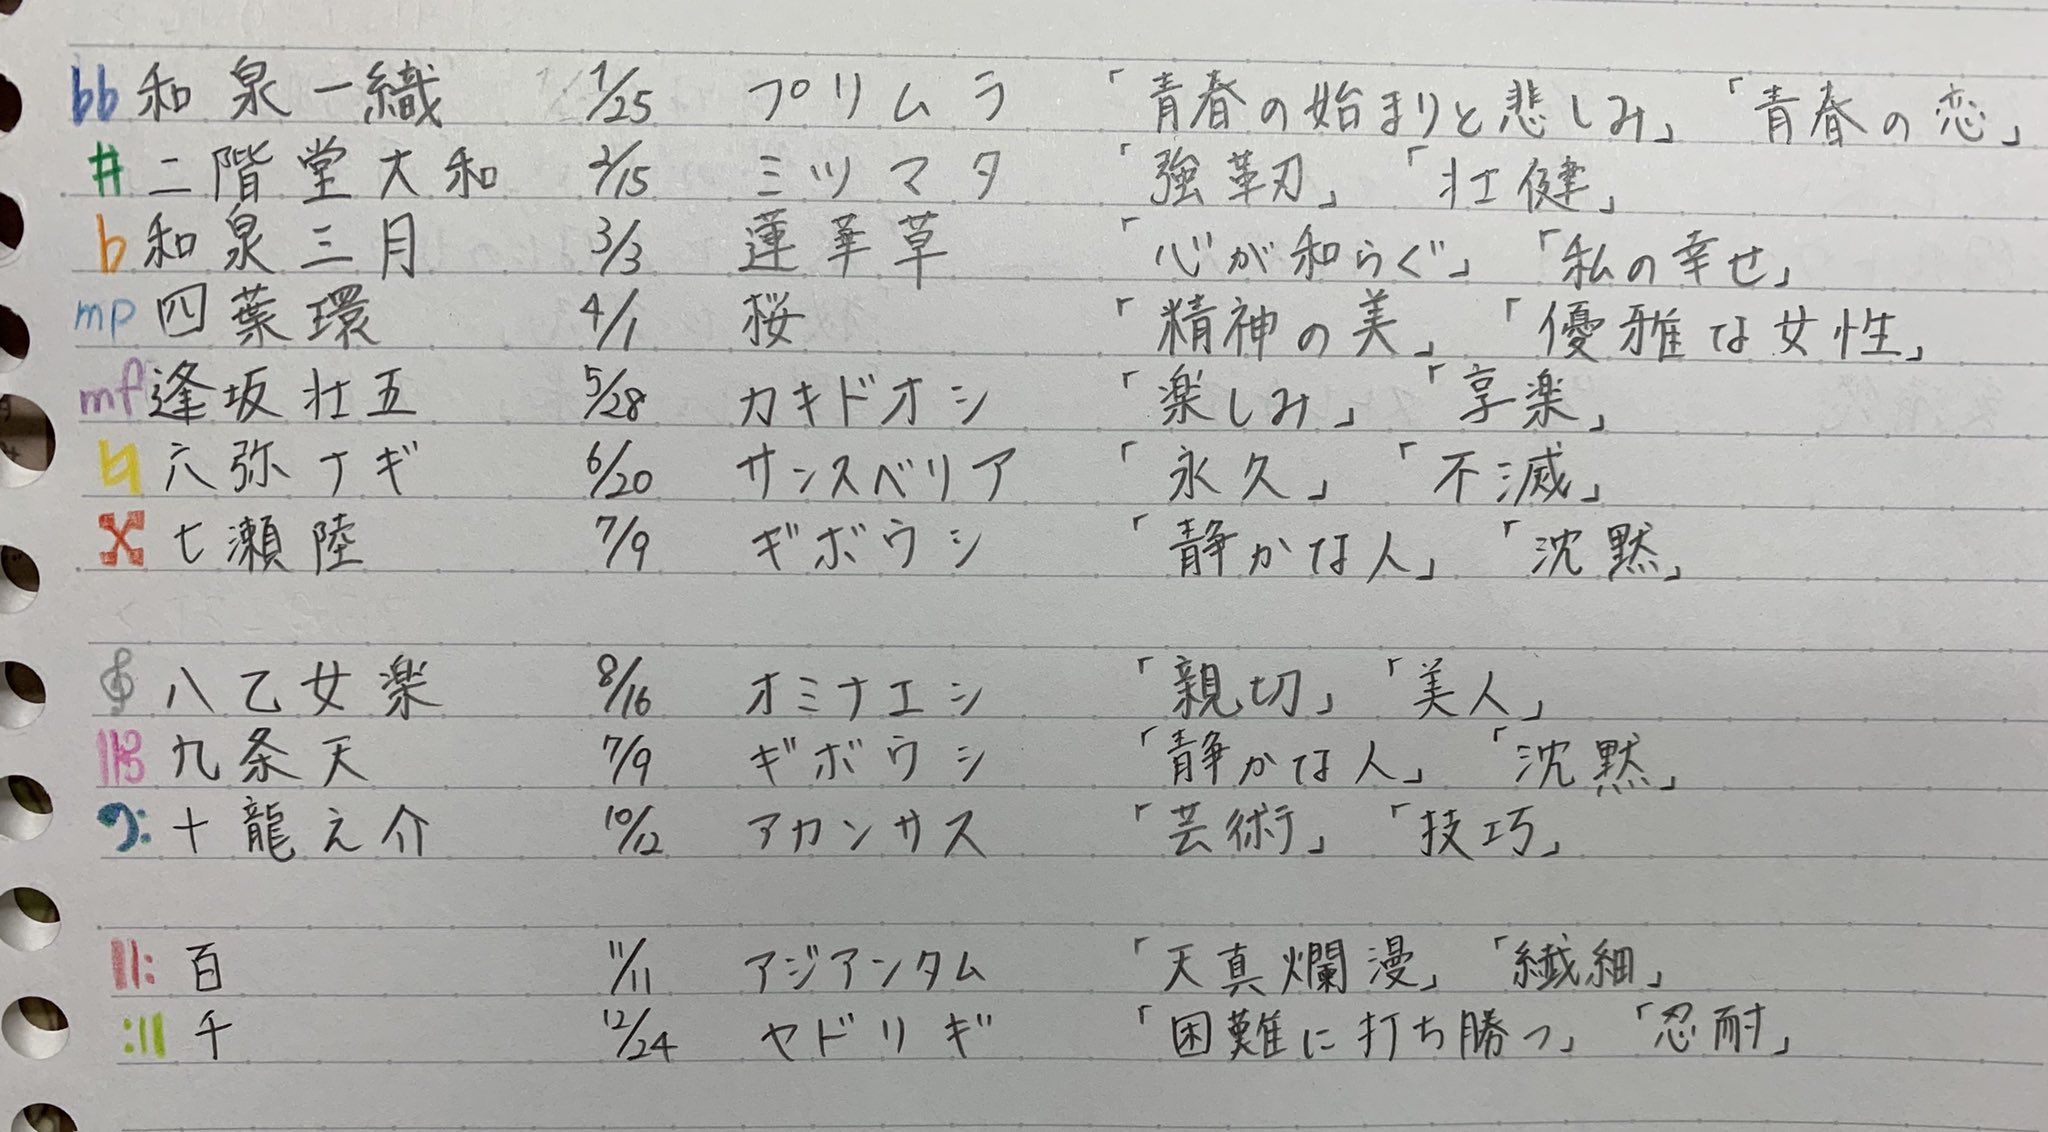 bb 和泉一織 1/25 プリムラ 「青春の始まりと悲しみ」 「青春の恋」
# 二階堂大和 2/15 ミツマタ 「強革刃」 「壮健」
b 和泉三月 3/3 蓮華草 「心が和らぐ」 「私の幸せ」
mp 四葉環 4/1 桜 「精神の美」 「優雅な女性」
mf 逢坂壮五 5/28 カキドオシ 「楽しみ」 「享楽」
♮ 六弥ナギ 6/20 サンスベリア 「永久」 「不滅」
X 七瀬陸 7/9 ギボウシ 「静かな人」 「沈黙」
八乙女楽 8/16 オミナエシ 「親切」 「美人」
九条天 7/9 ギボウシ 「静かな人」 「沈黙」
十龍之介 10/12 アカンサス 「芸術」 「技巧」
百 11/11 アジアンタム 「天真爛漫」 「繊細」
千 12/24 ヤドリギ 「困難に打ち勝つ」 「忍耐」